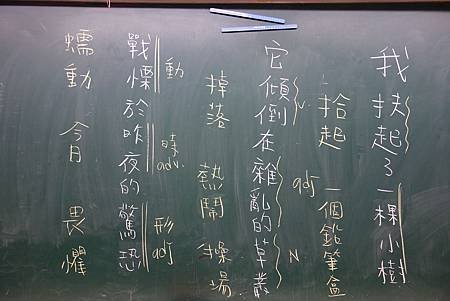 我扶起了一棵小樹
拾起 一個鉛筆盒
它傾倒在雜亂的草叢
v. adj N
掉落 熱鬧 操場
戰慄於昨夜的驚恐
動 時adv. 形adj
蠕動 今日 畏懼